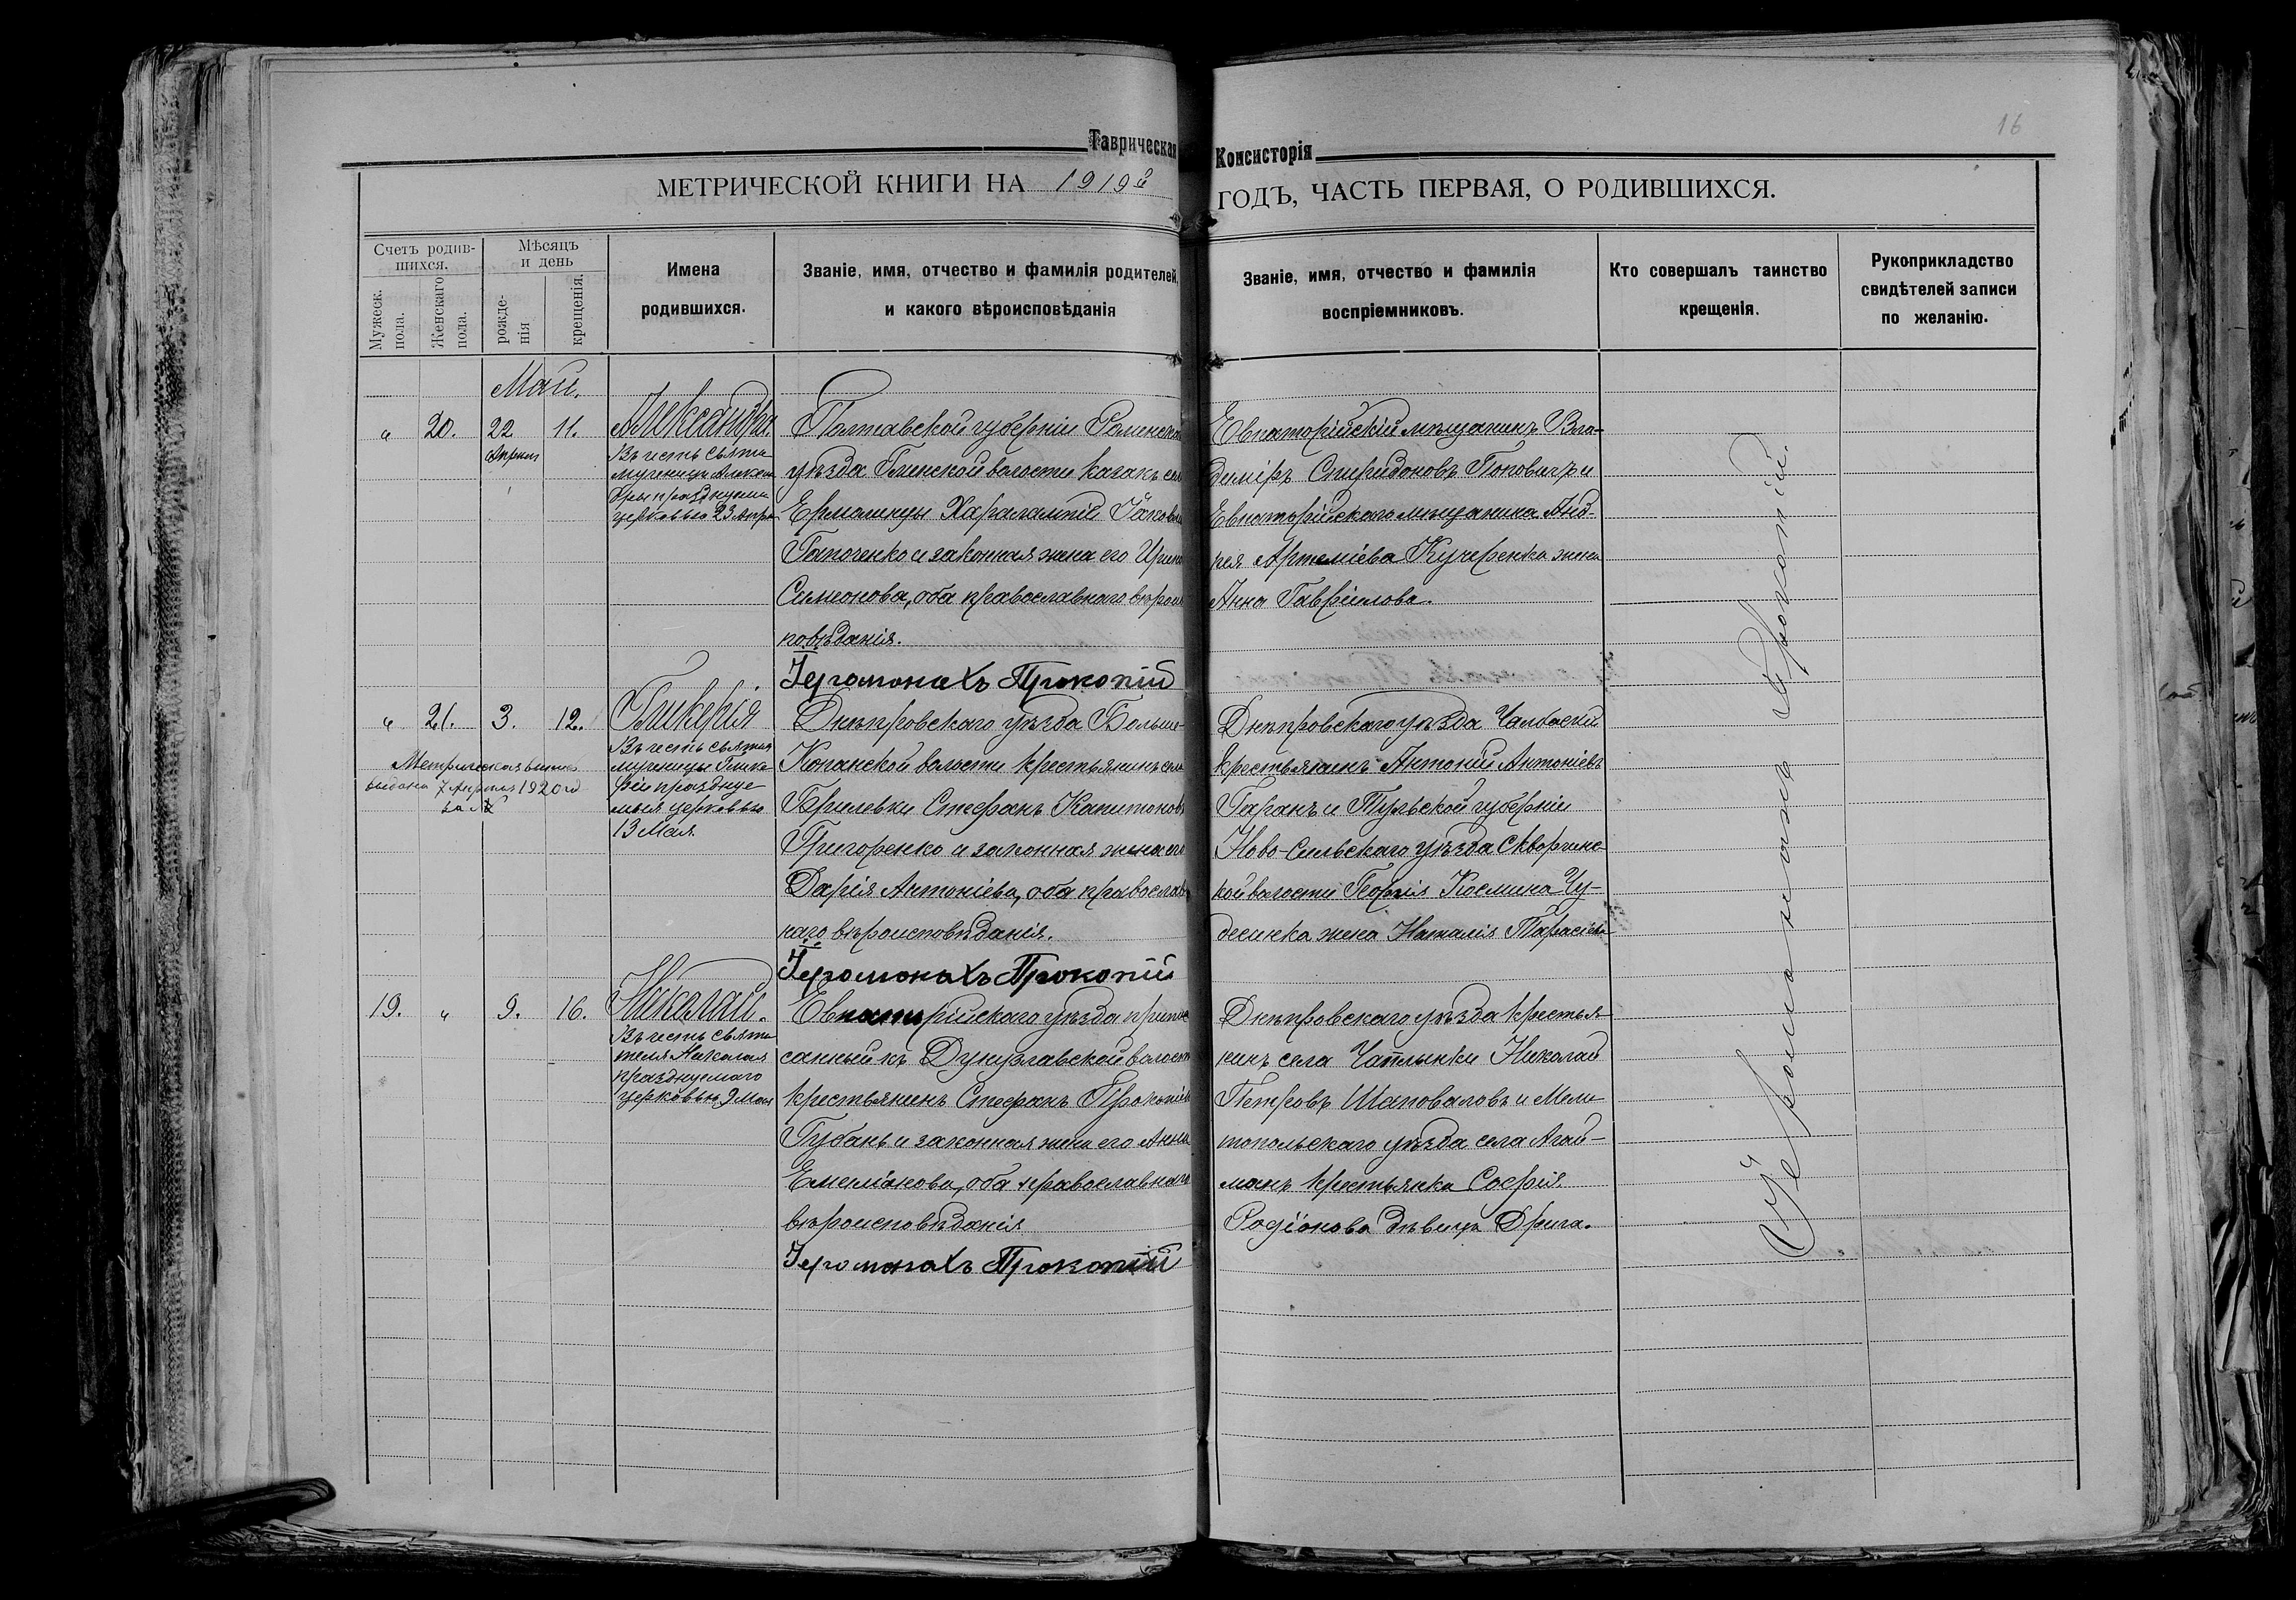 16
Таврическая Консисторія
МЕТРИЧЕСКОЙ КНИГИ НА 1919й ГОДЪ, ЧАСТЬ ПЕРВАЯ, О РОДИВШИХСЯ.
Счетъ родив-
шихся.
Мужеск.
пола.
Женскаго
пола.
Мѣсяцъ
и день
рожде-
нія
крещенія.
Имена
родившихся.
Званіе, имя, отчество и фамилія родителей,
и какого вѣроисповѣданія
Званіе, имя, отчество и фамилія
воспріемниковъ.
Кто совершалъ таинство
крещенія.
Рукоприкладство
свидѣтелей записи
по желанію.
Май.
" 20. 22 11.
Апрѣля
Александра.
Въ честь святы
мученицы Алексан
дры празднуемы
церковью 23 Апрѣ
Полтавской губерніи Роменска
уѣзда волости казакъ сел
Ермолинцы Харалампій Іаковл
Гапоченко и законная жена его Ирина
Симеонова, оба православнаго вѣроис
повѣданія.
Іеромонахъ Прокопій
Евпаторійскій мѣщанинъ Вла-
диміръ Спиридоновъ Поповичъ и
Евпаторійскаго мѣщанина Анд-
рея Артеміева Кучеренка жена
Анна Гавріилова.
" 21. 3. 12.
Метрическая выпись
выдана 7 Апрѣля 1920 го
за №
Гликерія
Въ честь святыя
мученицы Глике
ріи праздну
емыя церковью
13 Мая
Днѣпровскаго уѣзда Больше-
Копанской волости крестьянинъ села
Брилевки Стефанъ Капитоновъ
Григоренко и законная жена его
Дарія Антоніева, оба православ
наго вѣроисповѣданія.
Іеромонахъ Прокопій
Днѣпровскаго уѣзда Чалбаскій
крестьянинъ Антоній Антоніевъ
Гаранъ и Тульской губерніи
Ново-Сильского уѣзда Скворчинс
кой волости Георгія Космина Чу-
десинка жена Наталія Тарасіева
19. " 9. 16.
Николай.
Въ честь святи
теля Николая
празднуемаго
церковью 9 Мая
Евпаторійскаго уѣзда припи
санный къ Дунузлавской волости
крестьянинъ Стефанъ Прокопіевъ
Губань и законная жена его Анна
Емеліанова, оба православнаго
вѣроисповѣданія
Іеромонахъ Прокопій
Днѣпровскаго уѣзда крестья
нинъ села Чаплынки Николай
Петровъ Шаповаловъ и Мели
топольскаго уѣзда села Агай-
манъ крестьянка Софія
Родіонова дѣвица Дрига.
Іеромонахъ Прокопій.